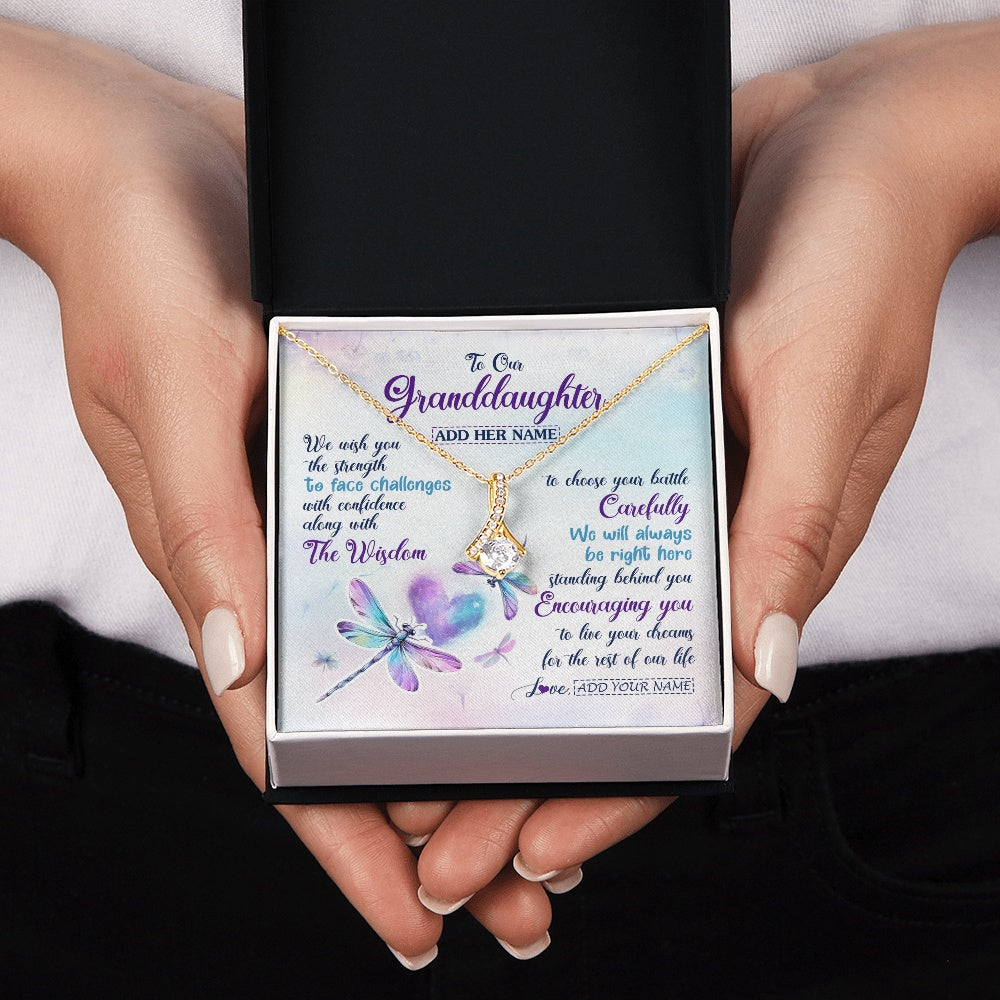 To Our
Granddaughter
ADD HER NAME
We wish you
the strength
to face challenges
with confidence
along with
The Wisdom
to choose your battle
Carefully
We will always
be right here
standing behind you
Encouraging you
to live your dreams
for the rest of our life
Love, ADD YOUR NAME